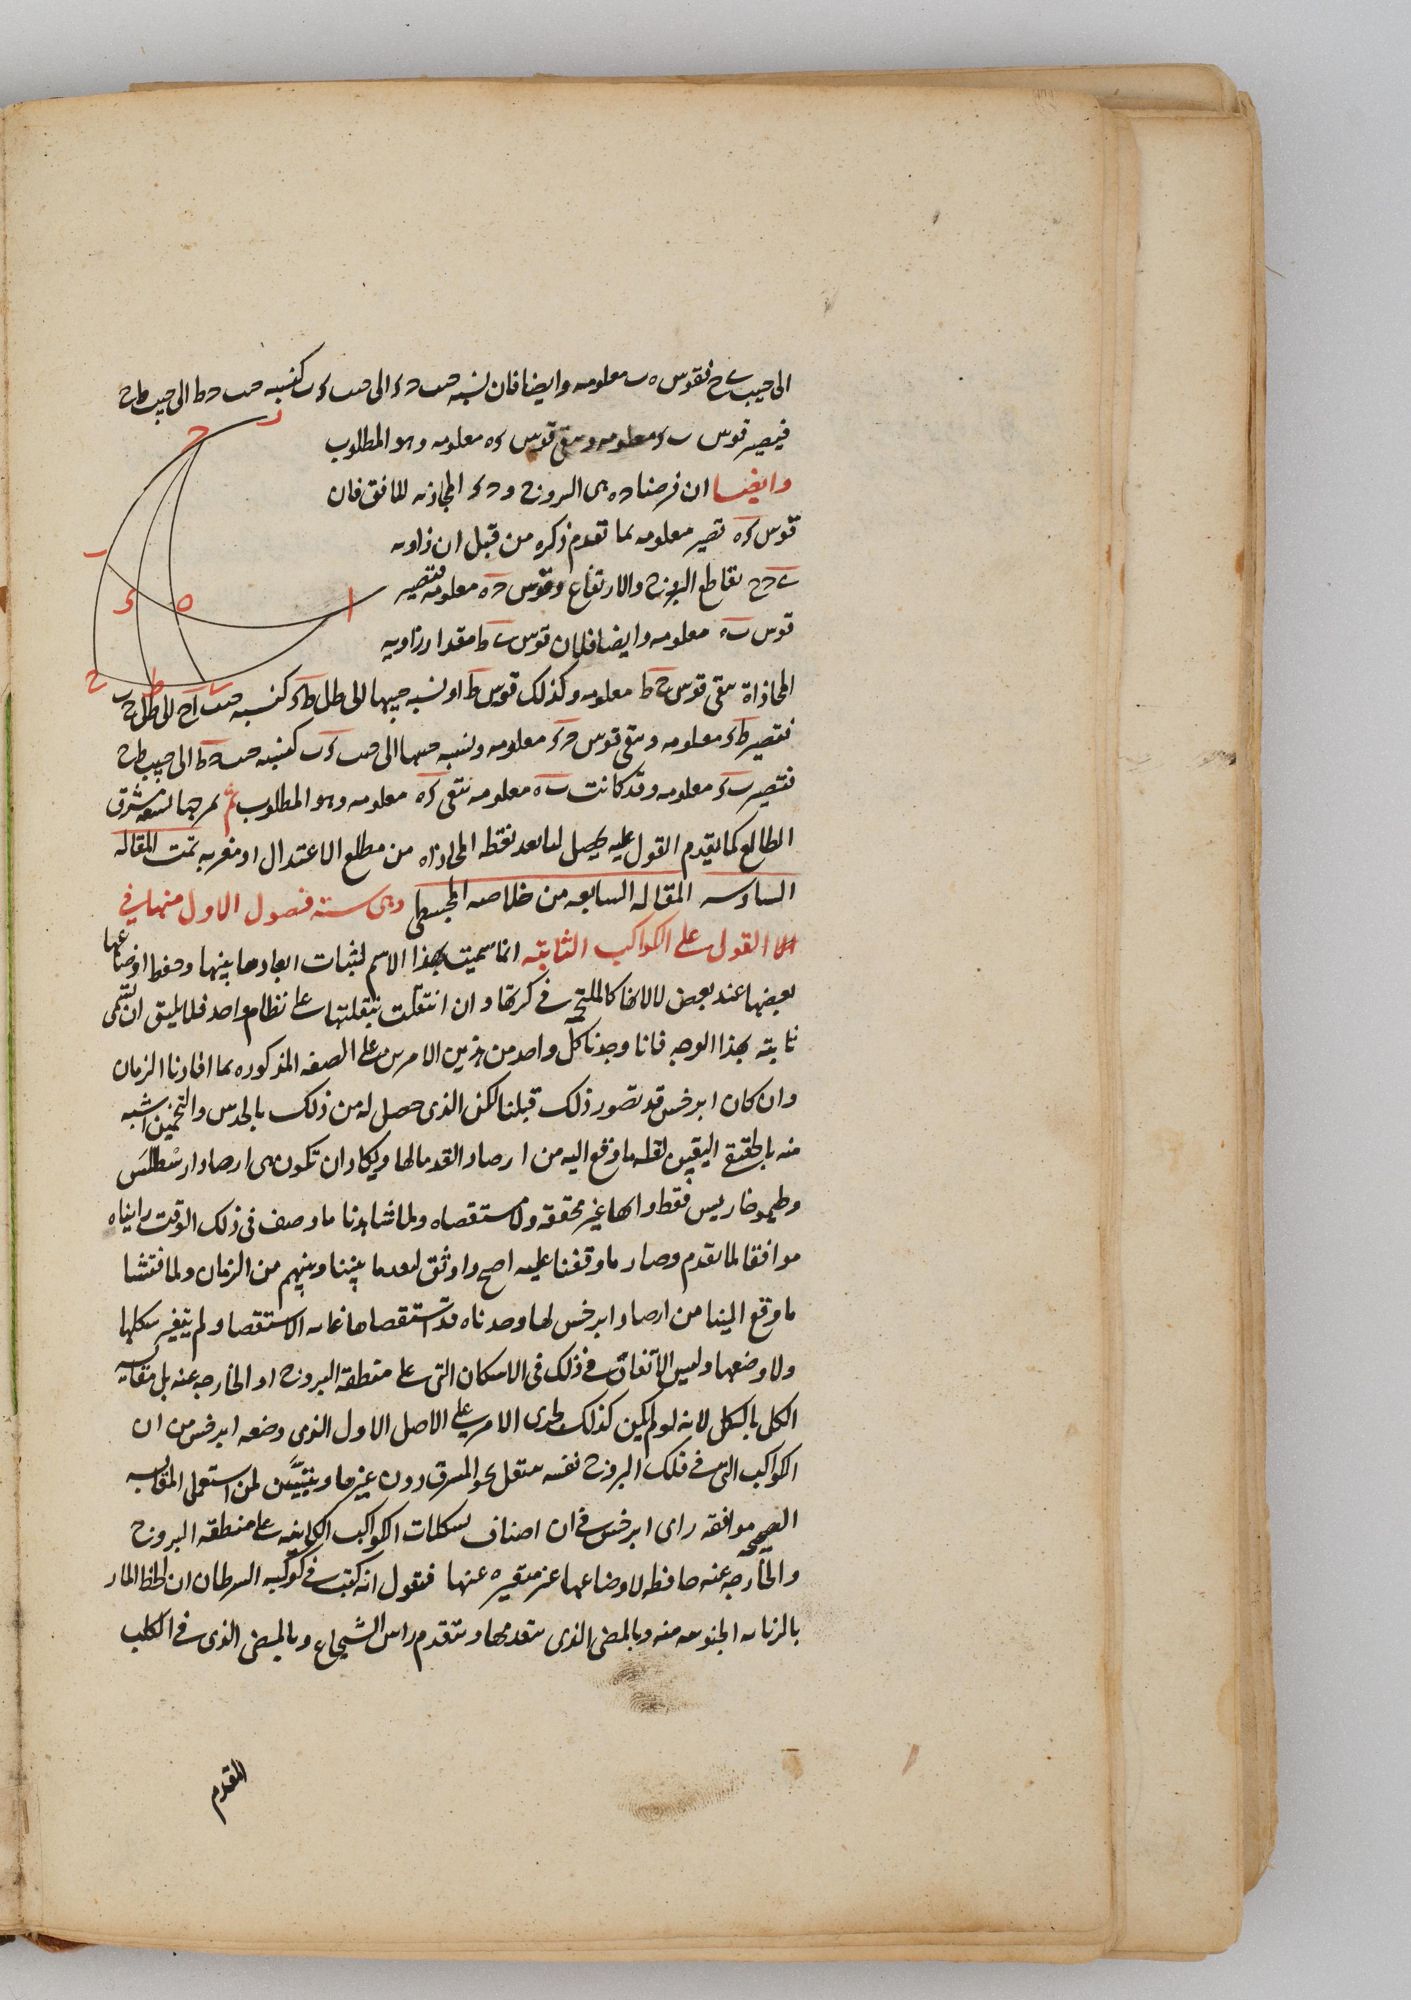 الى جيب ے ح فقوس ه ب معلومه وايضا فان نسبه جيب د ك الى جيب ك ب كنسبه جيب د ط الى جيب ط ح
فيصير قوس ب ك معلومه وسقى قوس ك ه معلومه وهو المطلوب
وايضا ان فرضنا د ه ى البروج و د ك المحاذيه للافق فان
قوس ك ه تصير معلومه بما تقدم ذكره من قبل ان زاويه
ے د ح تقاطع البروج والارتفاع وقوس د ه معلومه فتصير
قوس ب ه معلومه وايضا فلان قوس ے ط مقدار زاويه
المحاذاة سقى قوس ح ط معلومه وكذلك قوس ط ا ونسبه جيبها الى ظل ط ك كنسبه جيب ا ح الى ظل ح ب
فتصير ط ك معلومه وسقى قوس د ك معلومه ونسبه جيبها الى جيب ك ب كنسبه جيب د ط الى جيب ط ح
فتصير ب ك معلومه وقد كانت ب ه معلومه تبقى ك ه معلومه وهو المطلوب ثم من جهة لسعه مشرق
الطالع كما تقدم القول عليه يحصل لنا بعد نقطه المحاذاه من مطلع الاعتدال او مغربه تمت المقاله
السادسه المقاله السابعه من خلاصه المجسطى وهى سته فصول الاول منها فى
القول على الكواكب الثابته انما سميت بهذا الاسم لثبات ابعادها بينها وحفظ اوضاعها
بعضها عند بعض لا لانها كالملتحمه فى كرتها وان انتقلت بنقلتها على نظام واحد فلا يليق ان تسمى
ثابته بهذا الوجه فانا وجدنا كل واحد من هذين الامرين على الصفه المذكوره بما افادنا الزمان
وان كان ابرخس قد تصور ذلك قبلنا لكن الذى حصل له من ذلك بالحدس والتخمين اشبه
منه بالحقيق اليقين لقله ما وقع اليه من ارصاد القدما لها ويكاد ان تكون هى ارصاد ارسطلس
وطيموخاريس فقط وانها غير محققه ولا مستقصاه ولما شاهدنا ما وصف فى ذلك الوقت رايناه
موافقا لما تقدم وصار ما وقفنا عليه اصح واوثق لبعد ما بيننا وبينهم من الزمان ولما فتشنا
ما وقع الينا من ارصاد ابرخس لها وجدناه قد استقصاها غايه الاستقصا ولم يتغير شكلها
ولا وضعها وليس الاتفاق فى ذلك فى الاشكال التى على منطقه البروج او الخارجه عنه بل مقايسه
الكل بالكل لانه لو لم يكن كذلك لجرى الامر على الاصل الاول الذى وضعه ابرخس من ان
الكواكب التى فى فلك البروج نفسه ستقل نحو المشرق دون غيرها ويتبيّن لمن استعمل المقايسه
الصحيحه موافقه راى ابرخس فى ان اصناف تشكلات الكواكب الكاينه على منطقه البروج
والخارجه عنه حافظه لاوضاعها غير متغيره عنها فنقول انه كتب فى كوكبه السرطان ان الخط المار
بالزبانه الجنوبيه منه وبالمضى الذى يتقدمها ويتقدم راس الشجاع وبالمضى الذى فى الكلب
المقدم
ز
ح
ب
ك
ه
ا
ح
ط
ے